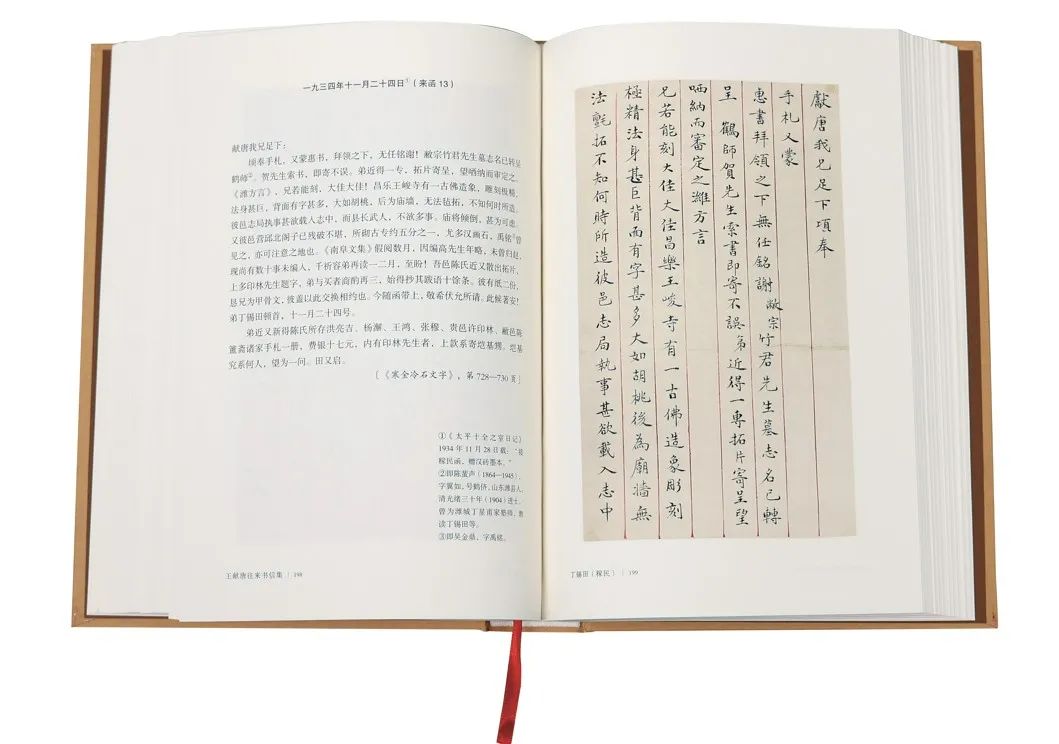 一九三四年十一月二十四日①（来函13）
献唐我兄足下：
顷奉手札，又蒙惠书，拜领之下，无任铭谢！敝宗竹君先生墓志名已转呈
鹤师②。贺先生索书，即寄不误。弟近得一专，拓片寄呈，望哂纳而审定之。
《潍方言》，兄若能刻，大佳大佳！昌乐王峻寺有一古佛造象，雕刻极精，
法身甚巨，背面有字甚多，大如胡桃，后为庙墙，无法毡拓，不知何时所造。
彼邑志局执事甚欲载人志中，而县长武人，不欲多事。庙将倾倒，甚为可虑。
又彼邑营邱北阁子已残破不堪，所砌古专约五分之一，尤多汉画石，禹铭③曾
见之，亦可注意之地也。《南阜文集》假阅数月，因编高先生年略，未曾归赵，
现尚有数十事未编人，千祈容弟再读一二月，至盼！吾邑陈氏近又散出拓片，
上多印林先生题字，弟与买者商酌再三，始得抄其跋语十馀条。彼有纸二份，
恳兄为甲骨文，彼盖以此交换相约也。今随函带上，敬希伏允所请。此候著安！
弟丁锡田顿首，十一月二十四号。
弟近又新得陈氏所存洪亮吉、杨澥、王鸿、张穆、贵邑许印林、敝邑陈
簠斋诸家手札一册，费银十七元，内有印林先生者，上款系寄垲基甥。垲基
究系何人，望为一问。田又启。
［《寒金冷石文字》，第728—730页］
①《太平十全之室日记》
1934年11月28日载：“接
稼民函，赠汉砖墨本。”
②即陈蜚声（1864—1945），
字翼如，号鹤侪，山东潍县人，
清光绪三十年（1904）进士，
曾为潍城丁星甫家塾师，教
读丁锡田等。
③即吴金鼎，字禹铭。
王献唐往来书信集 | 198
獻唐我兄足下頃奉
手札又蒙
惠書拜領之下無任銘謝敝宗竹君先生墓志名已轉
呈 鶴師賀先生索書即寄不誤弟近得一專拓片寄呈望
哂納而審定之濰方言
兄若能刻大佳大佳昌樂王峻寺有一古佛造象彫刻
極精法身甚巨背面有字甚多大如胡桃後為廟牆無
法氈拓不知何時所造彼邑志局執事甚欲載入志中
丁锡田（稼民） | 199